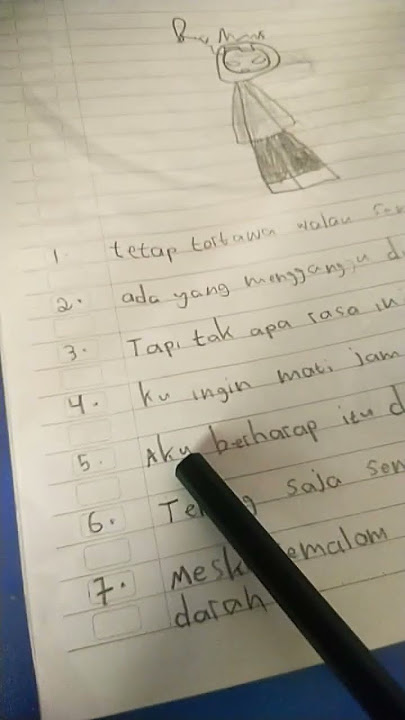 1. tetap tortawa walau
2. ada yang mengganggu
3. Tapi tak apa rasa in
4. ku ingin mati jam
5. Aku berharap itu d
6. saja sem
7. Mesk emalam
darah